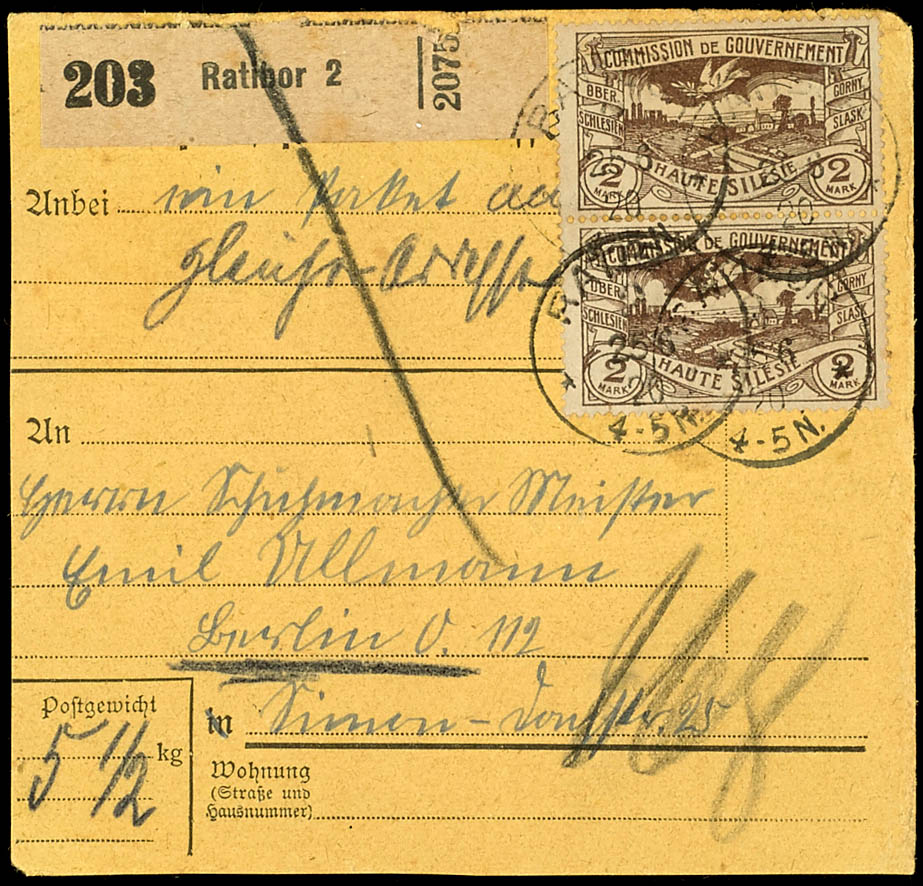 203 Ratibor 2 2075
Anbei ein Paket an
gleiche Adresse
COMMISSION DE GOUVERNEMENT
OBER SCHLESIEN GORNY SLASK
2 MARK HAUTE SILESIE 2 MARK
COMMISSION DE GOUVERNEMENT
OBER SCHLESIEN GORNY SLASK
2 MARK HAUTE SILESIE 2 MARK
20
4-5N.
20
4-5N.
An
Herrn Schuhmacher Meister
Emil Ullmann
Berlin O. 112
in Simon-Dachstr. 25
Postgewicht
5 1/2 kg
Wohnung
(Straße und
Hausnummer)